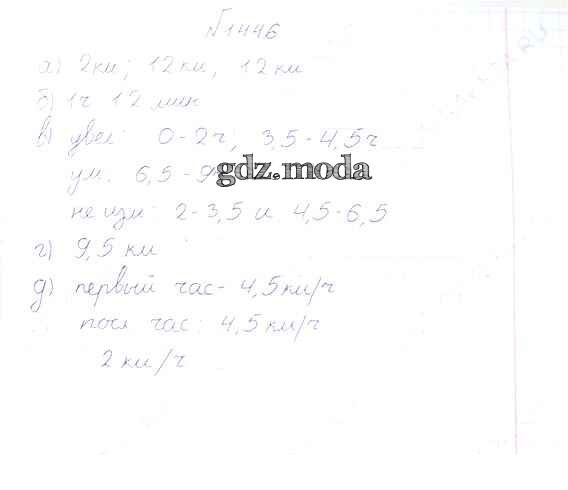 №1446
а) 2км; 12км, 12км
б) 1ч 12мин
в) увел: 0-2ч; 3,5-4,5ч
ум. 6,5-9
gdz.moda
не изм: 2-3,5 и 4,5-6,5
г) 9,5 км
д) первый час- 4,5км/ч
посл час: 4,5км/ч
2км/ч